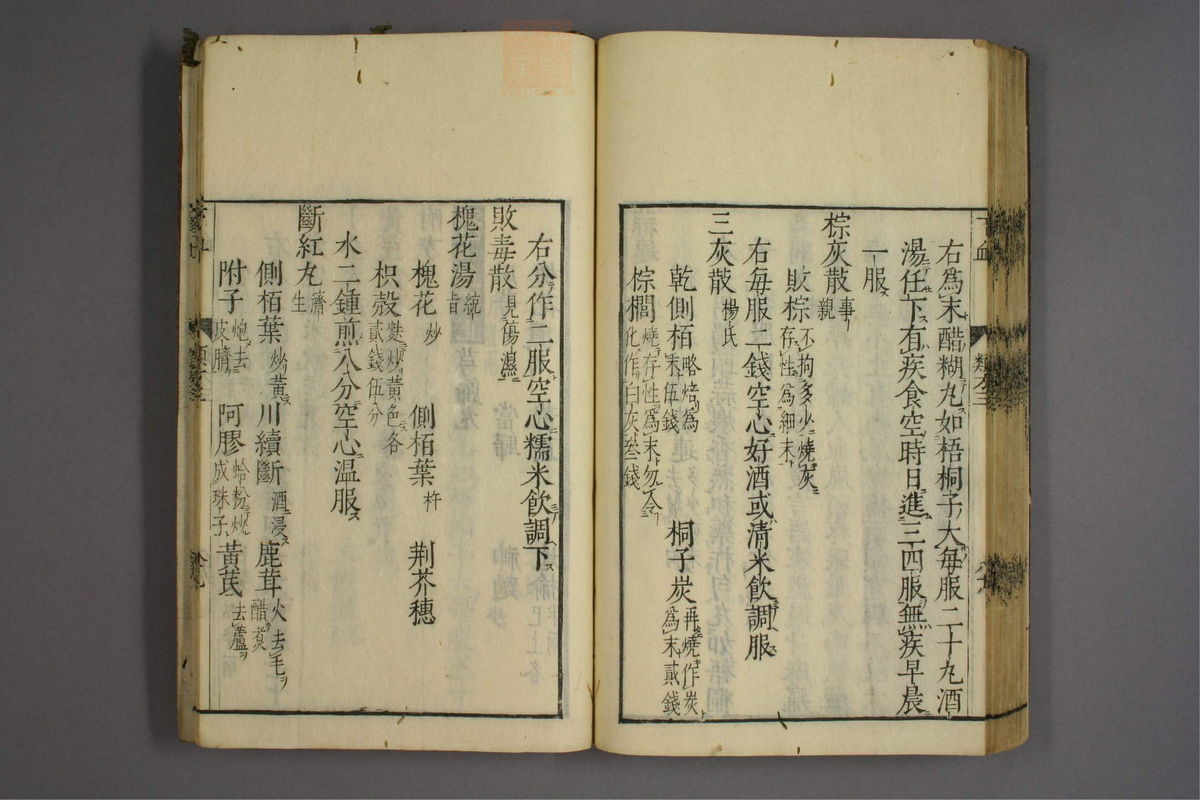 右爲末醋糊丸如梧桐子大每服二十九酒
湯任下有疾食空時日進三四服無疾早晨
一服
棕灰散事親
敗棕不拘多少燒灰存性爲細末
右每服二錢空心好酒或清米飲調服
三灰散楊氏
乾側栢略焙爲末伍錢 桐子炭再燒作炭爲末貳錢
棕櫚燒存性爲末勿令化作白灰叁錢
右分作二服空心糯米飲調下
敗毒散見傷濕
槐花湯統旨
槐花炒 側栢葉杵 荆芥穗
枳殼麩炒黃色各貳錢伍分
水二鍾煎八分空心温服
斷紅丸濟生
側栢葉炒黃 川續斷酒浸 鹿茸火去毛醋煮
附子炮去皮臍 阿膠蛤粉炒成珠子 黃芪去蘆